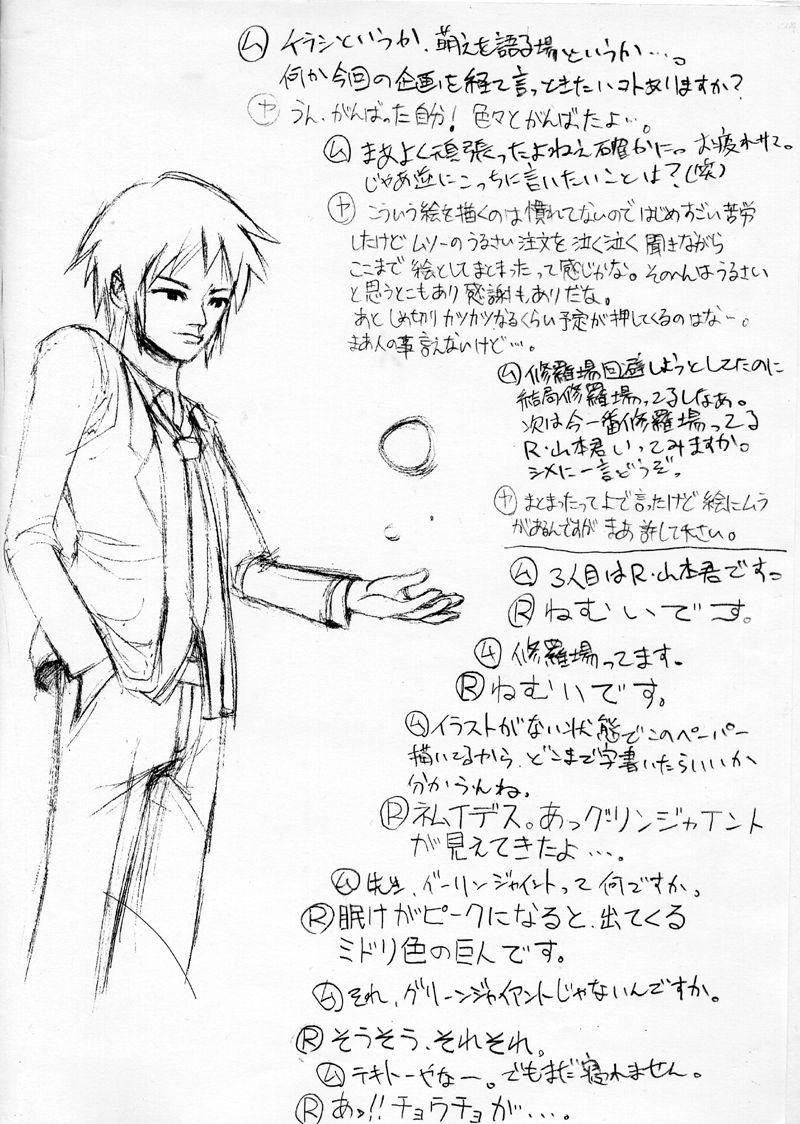 ム イラジというか、萌えを語る場というか…。
何か今回の企画を経て言っときたいコトありますか?
ヤ うん、がんばった自分! 色々とがんばたよ…。
ム まあよく頑張ったよねえ確かに。お疲れサマ。
じゃあ逆にこっちに言いたいことは?(笑)
ヤ こういう絵を描くのは慣れてないのではじめすごい苦労
したけど ムソーのうるさい注文を泣く泣く聞きながら
ここまで絵としてまとまったって感じかな。そのへんはうるさい
と思うとこもあり感謝もありだな。
あとしめ切りカツカツなるくらい予定が押してくるのはなー。
まあ人の事言えないけど…。
ム 修羅場回避しようとしてたのに
結局修羅場ってるしなあ。
次は今一番修羅場ってる
R・山本君いってみますか。
シメに一言どうぞっ
ヤ まとまったって上で言ったけど絵にムラ
があるんですが まあ許して下さい。
ム 3人目はR・山本君です。
R ねむいです。
ム 修羅場ってます。
R ねむいです。
ム イラストがない状態でこのペーパー
描いてるから、どこまで字書いたらいいか
分からんね。
R ネムイデス。あっグリンジャイント
が見えてきたよ…。
ム 先生、グーリンジャイントって何ですか。
R 眠けがピークになると、出てくる
ミドリ色の巨人です。
ム それ、グリーンジャイアントじゃないんですか。
R そうそう、それそれ。
ム テキトーやなー。でもまだ寝れません。
R あっ!!チョウチョが…。